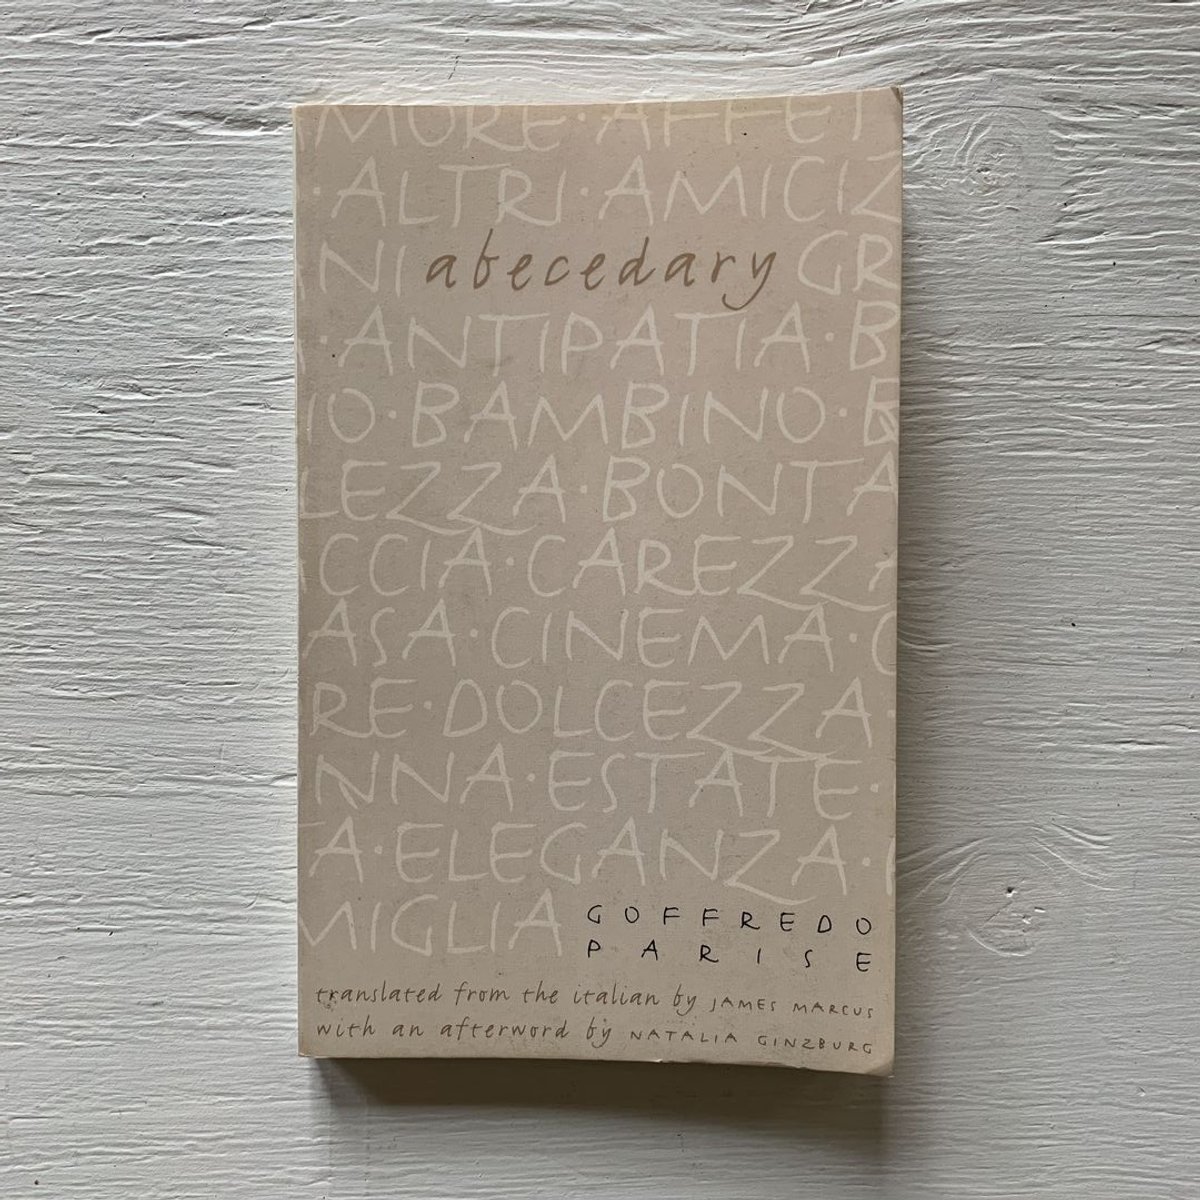 MORE · AFFET
· ALTRI · AMICIZ
NI abecedary GR
· ANTIPATIA · B
IO · BAMBINO · B
LEZZA · BONTA
CCIA · CAREZZA
ASA · CINEMA · C
RE · DOLCEZZA ·
NNA · ESTATE ·
TA · ELEGANZA ·
MIGLIA GOFFREDO
PARISE
translated from the italian by JAMES MARCUS
with an afterword by NATALIA GINZBURG